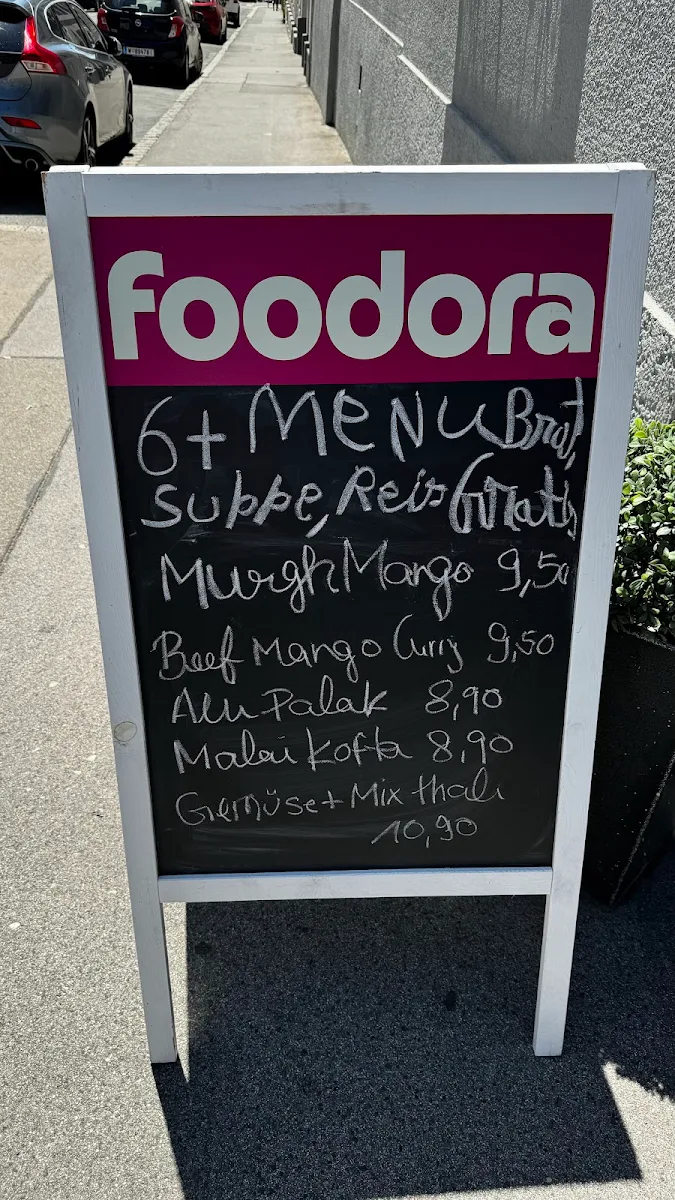 foodora
6+ MENU Brot,
suppe, Reis Gratis
Murgh Mango 9,50
Beef Mango Curry 9,50
Alu Palak 8,90
Malai Kofta 8,90
Gemüse + Mix thali
10,90